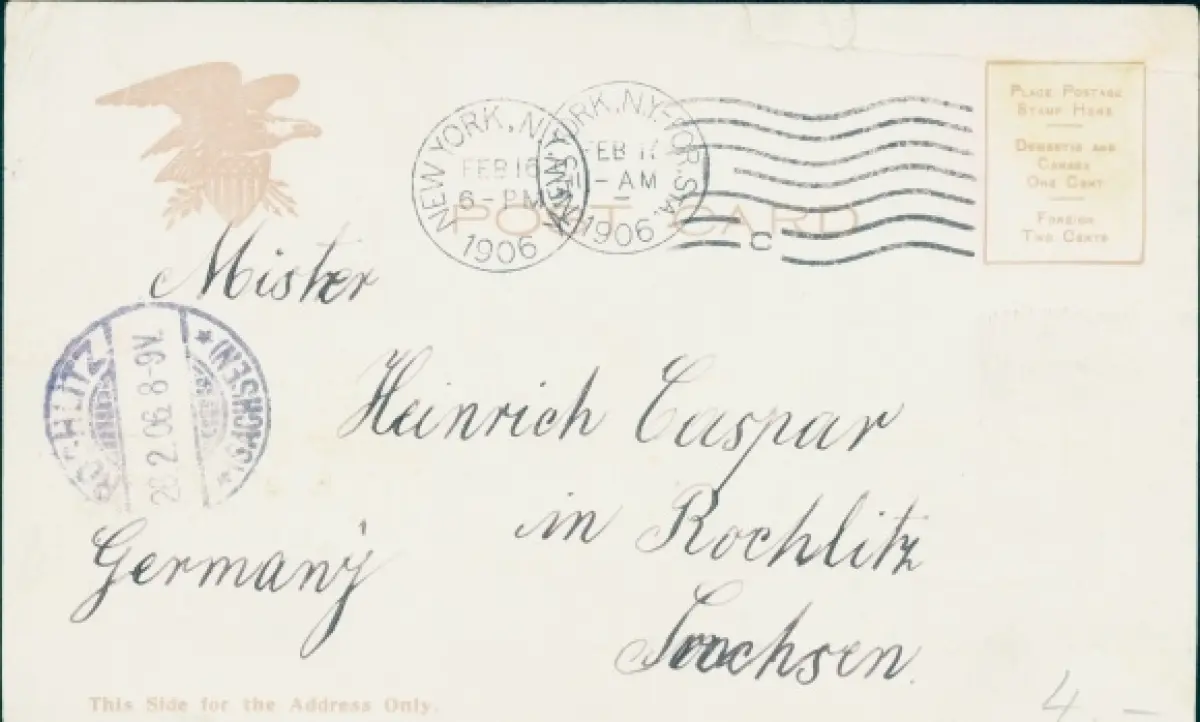 PLACE POSTAGE
STAMP HERE
DOMESTIC AND
CANADA
ONE CENT
FOREIGN
TWO CENTS
NEW YORK, N.Y.
FEB 16
6 - PM
1906
YORK, N.Y.-FOR. STA.
FEB 17
- AM
1906
C
POST CARD
Mister
ROCHLITZ
(SACHSEN)
2.06. 8-9V.
Heinrich Caspar
in Rochlitz
Sachsen.
Germany
This Side for the Address Only.
4.-